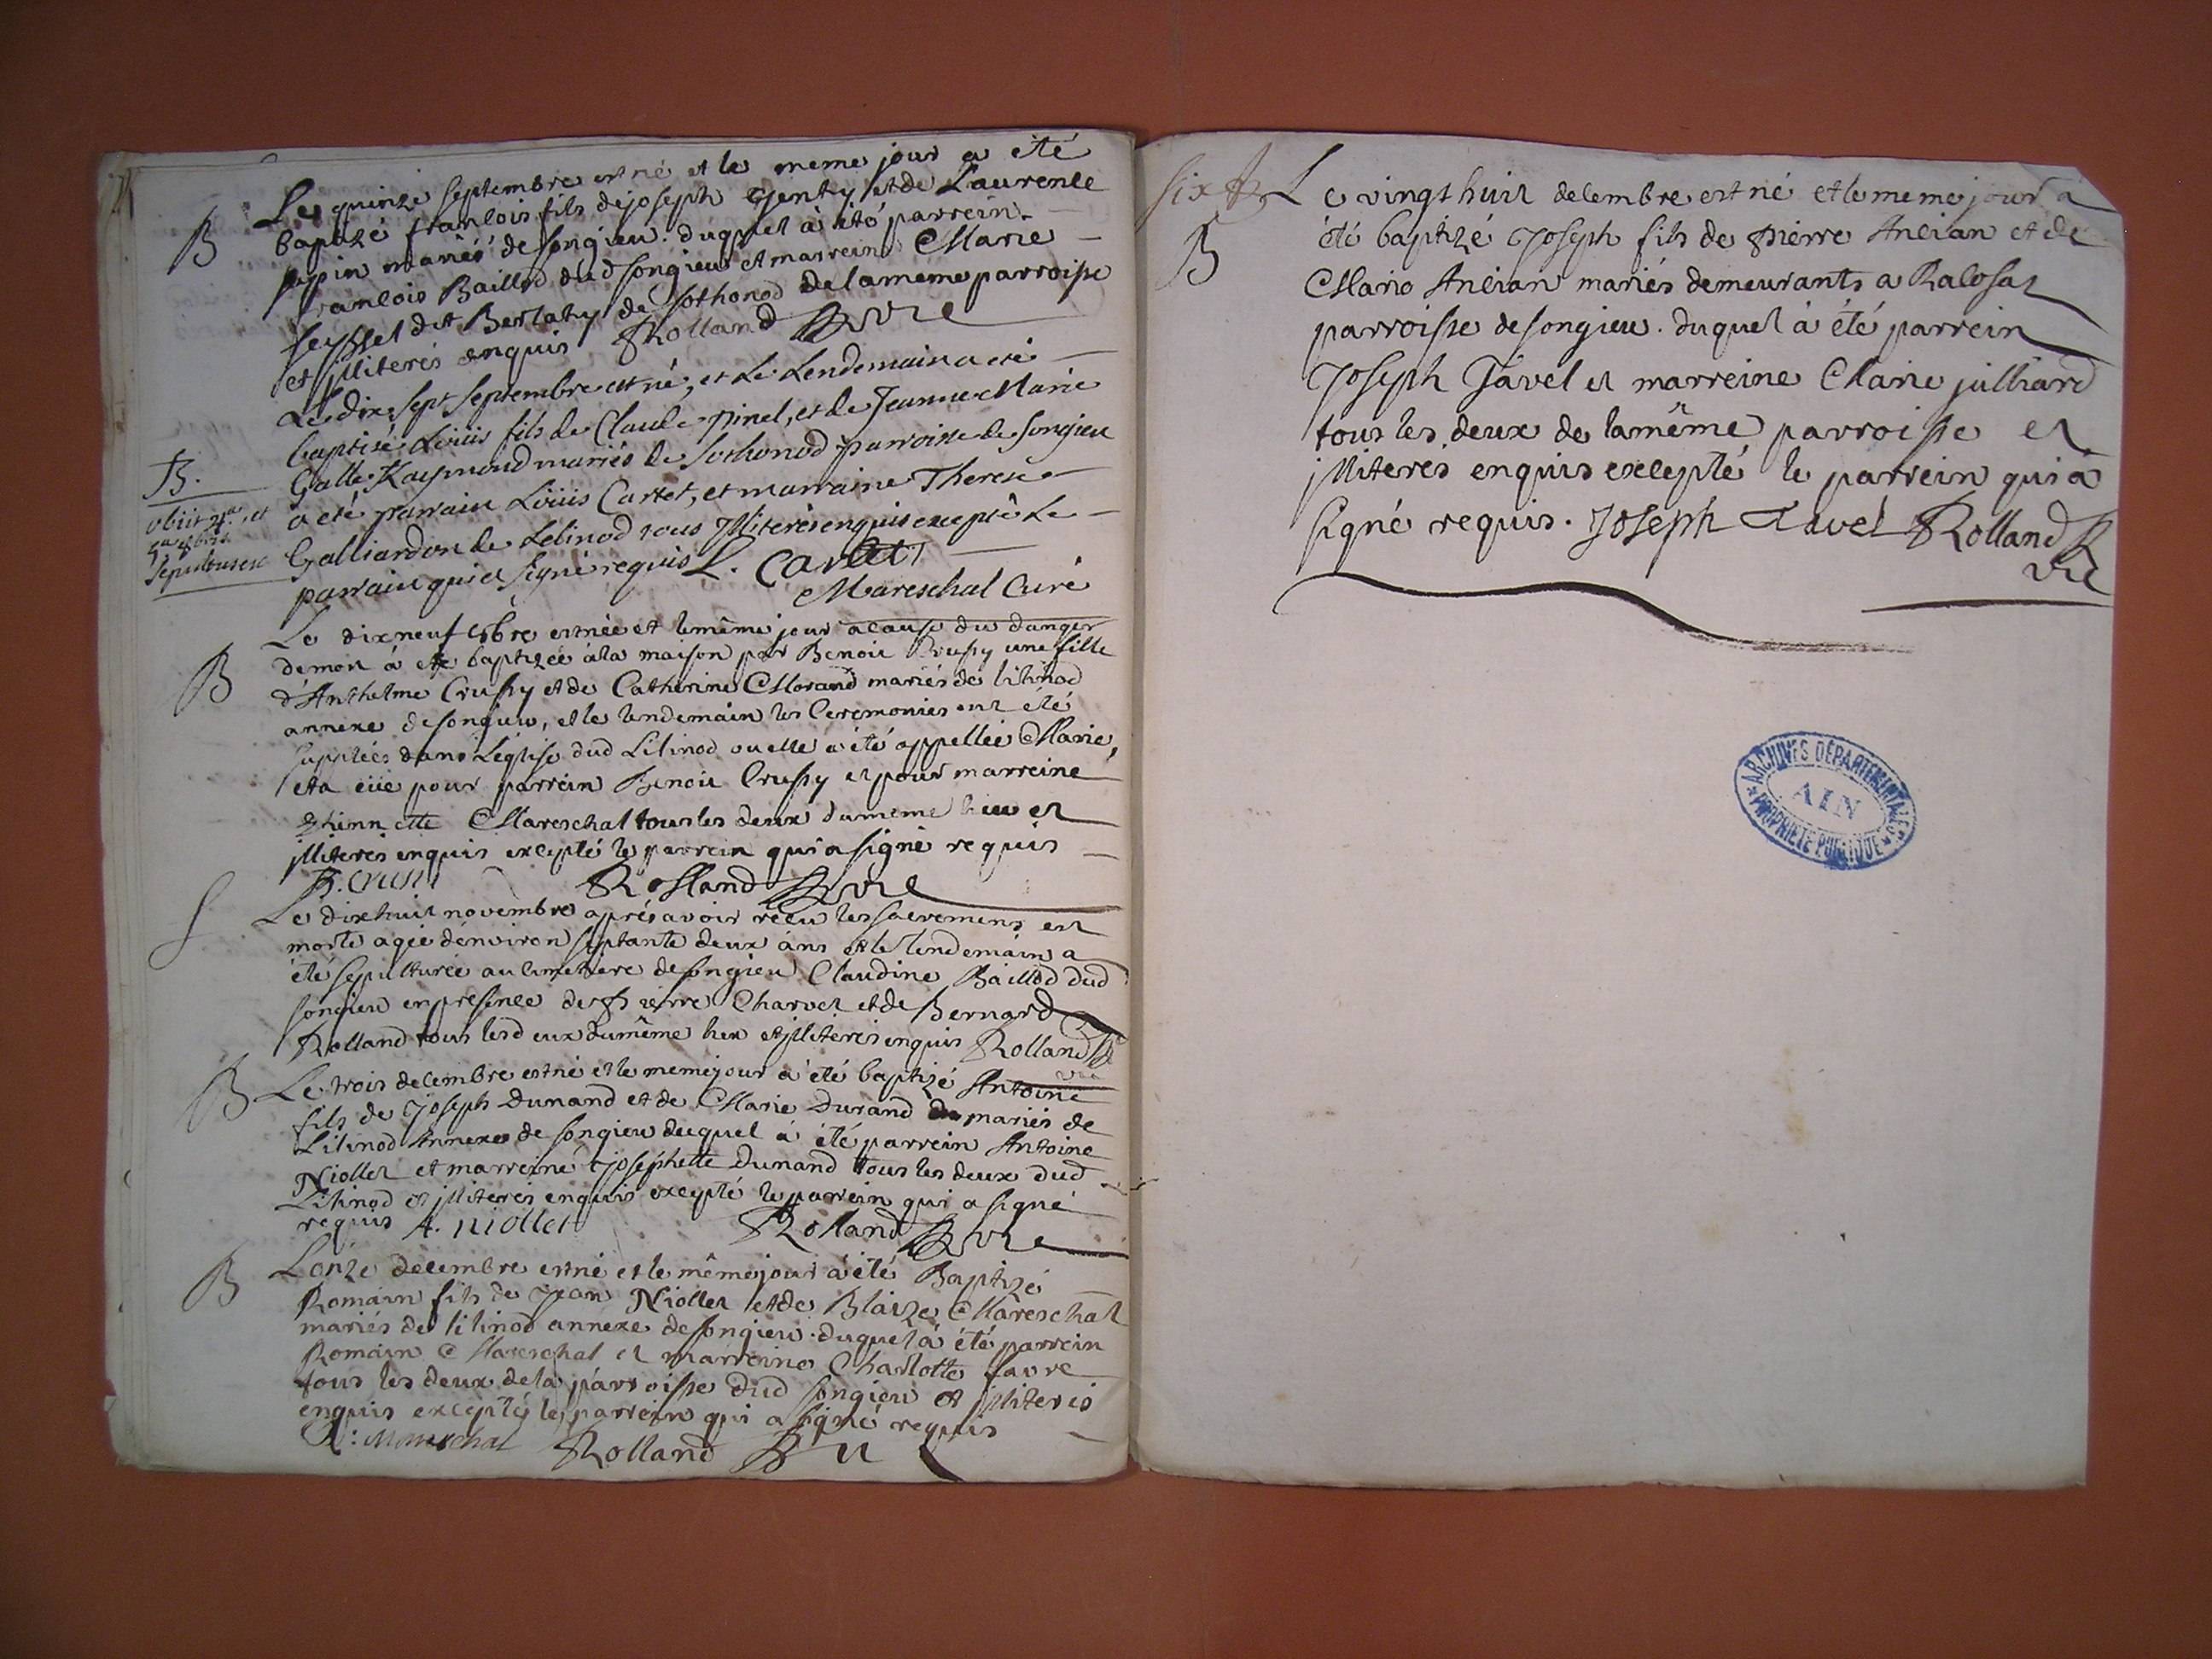 B
Le quinze septembre est né et le meme jour a été
baptizé francois fils de joseph Genty et de Laurence
pepin mariés de songieu. duquel à été parrein
francois Baillod dud songieu et marreine Marie
seyssel dit Berlahy de sothonod de la meme parroisse
et illiterés enquis Rolland vre
B.
obiit et
sepultus est
Le dix sept septembre est né, et Le Lendemain a été
baptisé Loüis fils de Claude pinel, et de Jeanne Marie
Galle Raymond mariés de Sothonod parroisse de songieu
a eté parrain Loüis Cartet, et marraine Therese
Galliardon de Lelinod tous illiterés enquis excepté Le
parrain qui a signé requis L. Cartet
Mareschal Curé
B
Le dixneuf est née et le même jour acause du danger
de mort à ete baptizée à la maison par Benoit Crussy une fille
d'Anthelme Crussy et de Catherine Morand mariés de lilinod
annexe de songieu, et le lendemain les Ceremonies ont été
supplées dans Léglise dud Lilinod ou elle a été appellée Marie,
et a eüe pour parrein Benoit Crussy et pour marreine
Thiennette Mareschal tous les deux du meme lieu et
illiteres enquis excepté le parrein qui a signé requis
B. Crussi Rolland vre
S
Le dixhuit novembre aprés avoir recu les sacremens est
morte agée d'environ septante deux ans et le lendemain a
été sepulturée au cimetiere de songieu Claudine Baillod dud
songieu en presence de pierre Charvet et de Bernard
Rolland tous les deux du même lieu et illiterés enquis Rolland
vre
B
Le trois decembre est né et le meme jour a été baptizé Antoine
fils de Joseph Dunand et de Marie Durand mariés de
Lilinod Annexe de songieu duquel à été parrein Antoine
Niollet et marreine Josephette Dunand tous les deux dud
Lilinod et illiterés enquis excepté le parrein qui a signé
requis A. niollet Rolland vre
B
Lonze decembre est né et le même jour a été Baptizé
Romain fils de Jean Niollet et de Blaize Mareschal
mariés de lilinod annexe de songieu. duquel à été parrein
Romain Mareschal et marreine Charlotte favre
tous les deux de la parroisse dud songieu et illiterés
enquis excepté le parrein qui a signé requis
R: Mareschal Rolland
six
B
Le vingt huit decembre est né et le meme jour a
été baptizé Joseph fils de pierre Ancian et de
Marie Ancian mariés demeurants a Ralosat
parroisse de songieu. duquel à été parrein
Joseph Tavel et marreine Marie julliard
tous les deux de la même parroisse et
illiterés enquis excepté le parrein qui à
signé requis. Joseph Tavel Rolland
vre
ARCHIVES DÉPARTEMENTALES
AIN
PROPRIETE PUBLIQUE